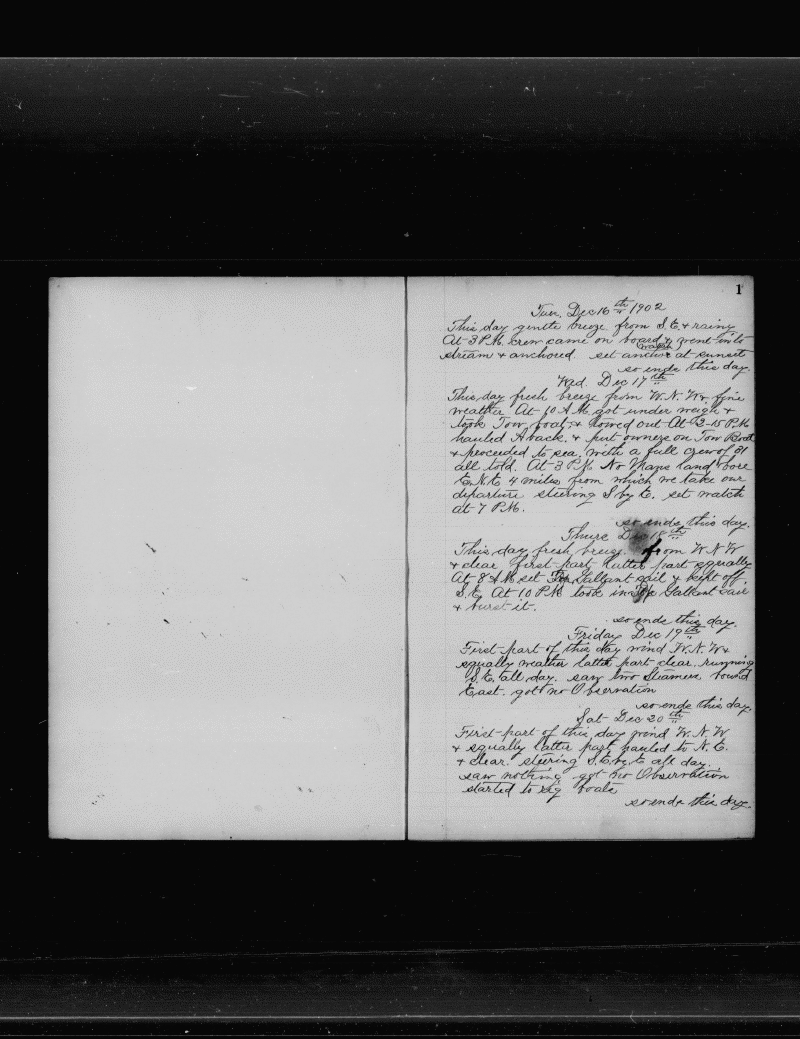 1
Tues. Dec 16th 1902
This day gentle breeze from S.E. & rainy
At 3 P.M. crew came on board & went into
stream & anchored set anchor watch at sunset
so ends this day.
Wed. Dec 17th
This day fresh breeze from W.N.W. & fine
weather At 10 A.M. got under weigh &
took Tow boat & towed out At 2-15 P.M.
hauled Aback & put owners on Tow Boat
& proceeded to sea with a full crew of 31
all told. At 3 P.M. No Mans land bore
E.N.E. 4 miles from which we take our
departure steering S by E. set watch
at 7 P.M.
so ends this day.
Thurs Dec 18th
This day fresh breeze from W.N.W
& clear first part latter part squally
At 8 A.M. set Top Gallant sail & kept off
S.E. At 10 P.M. took in Top Gallant sail
& burst it.
so ends this day.
Friday Dec 19th
First part of this day wind W.N.W &
squally weather latter part clear. running
S.E. all day. saw two Steamers bound
East. got no Observation
so ends this day.
Sat Dec 20th
First part of this day wind W.N.W
& squally latter part hauled to N.E.
& clear. steering S.E. by E all day.
saw nothing got no Observation
started to rig boats
so ends this day.